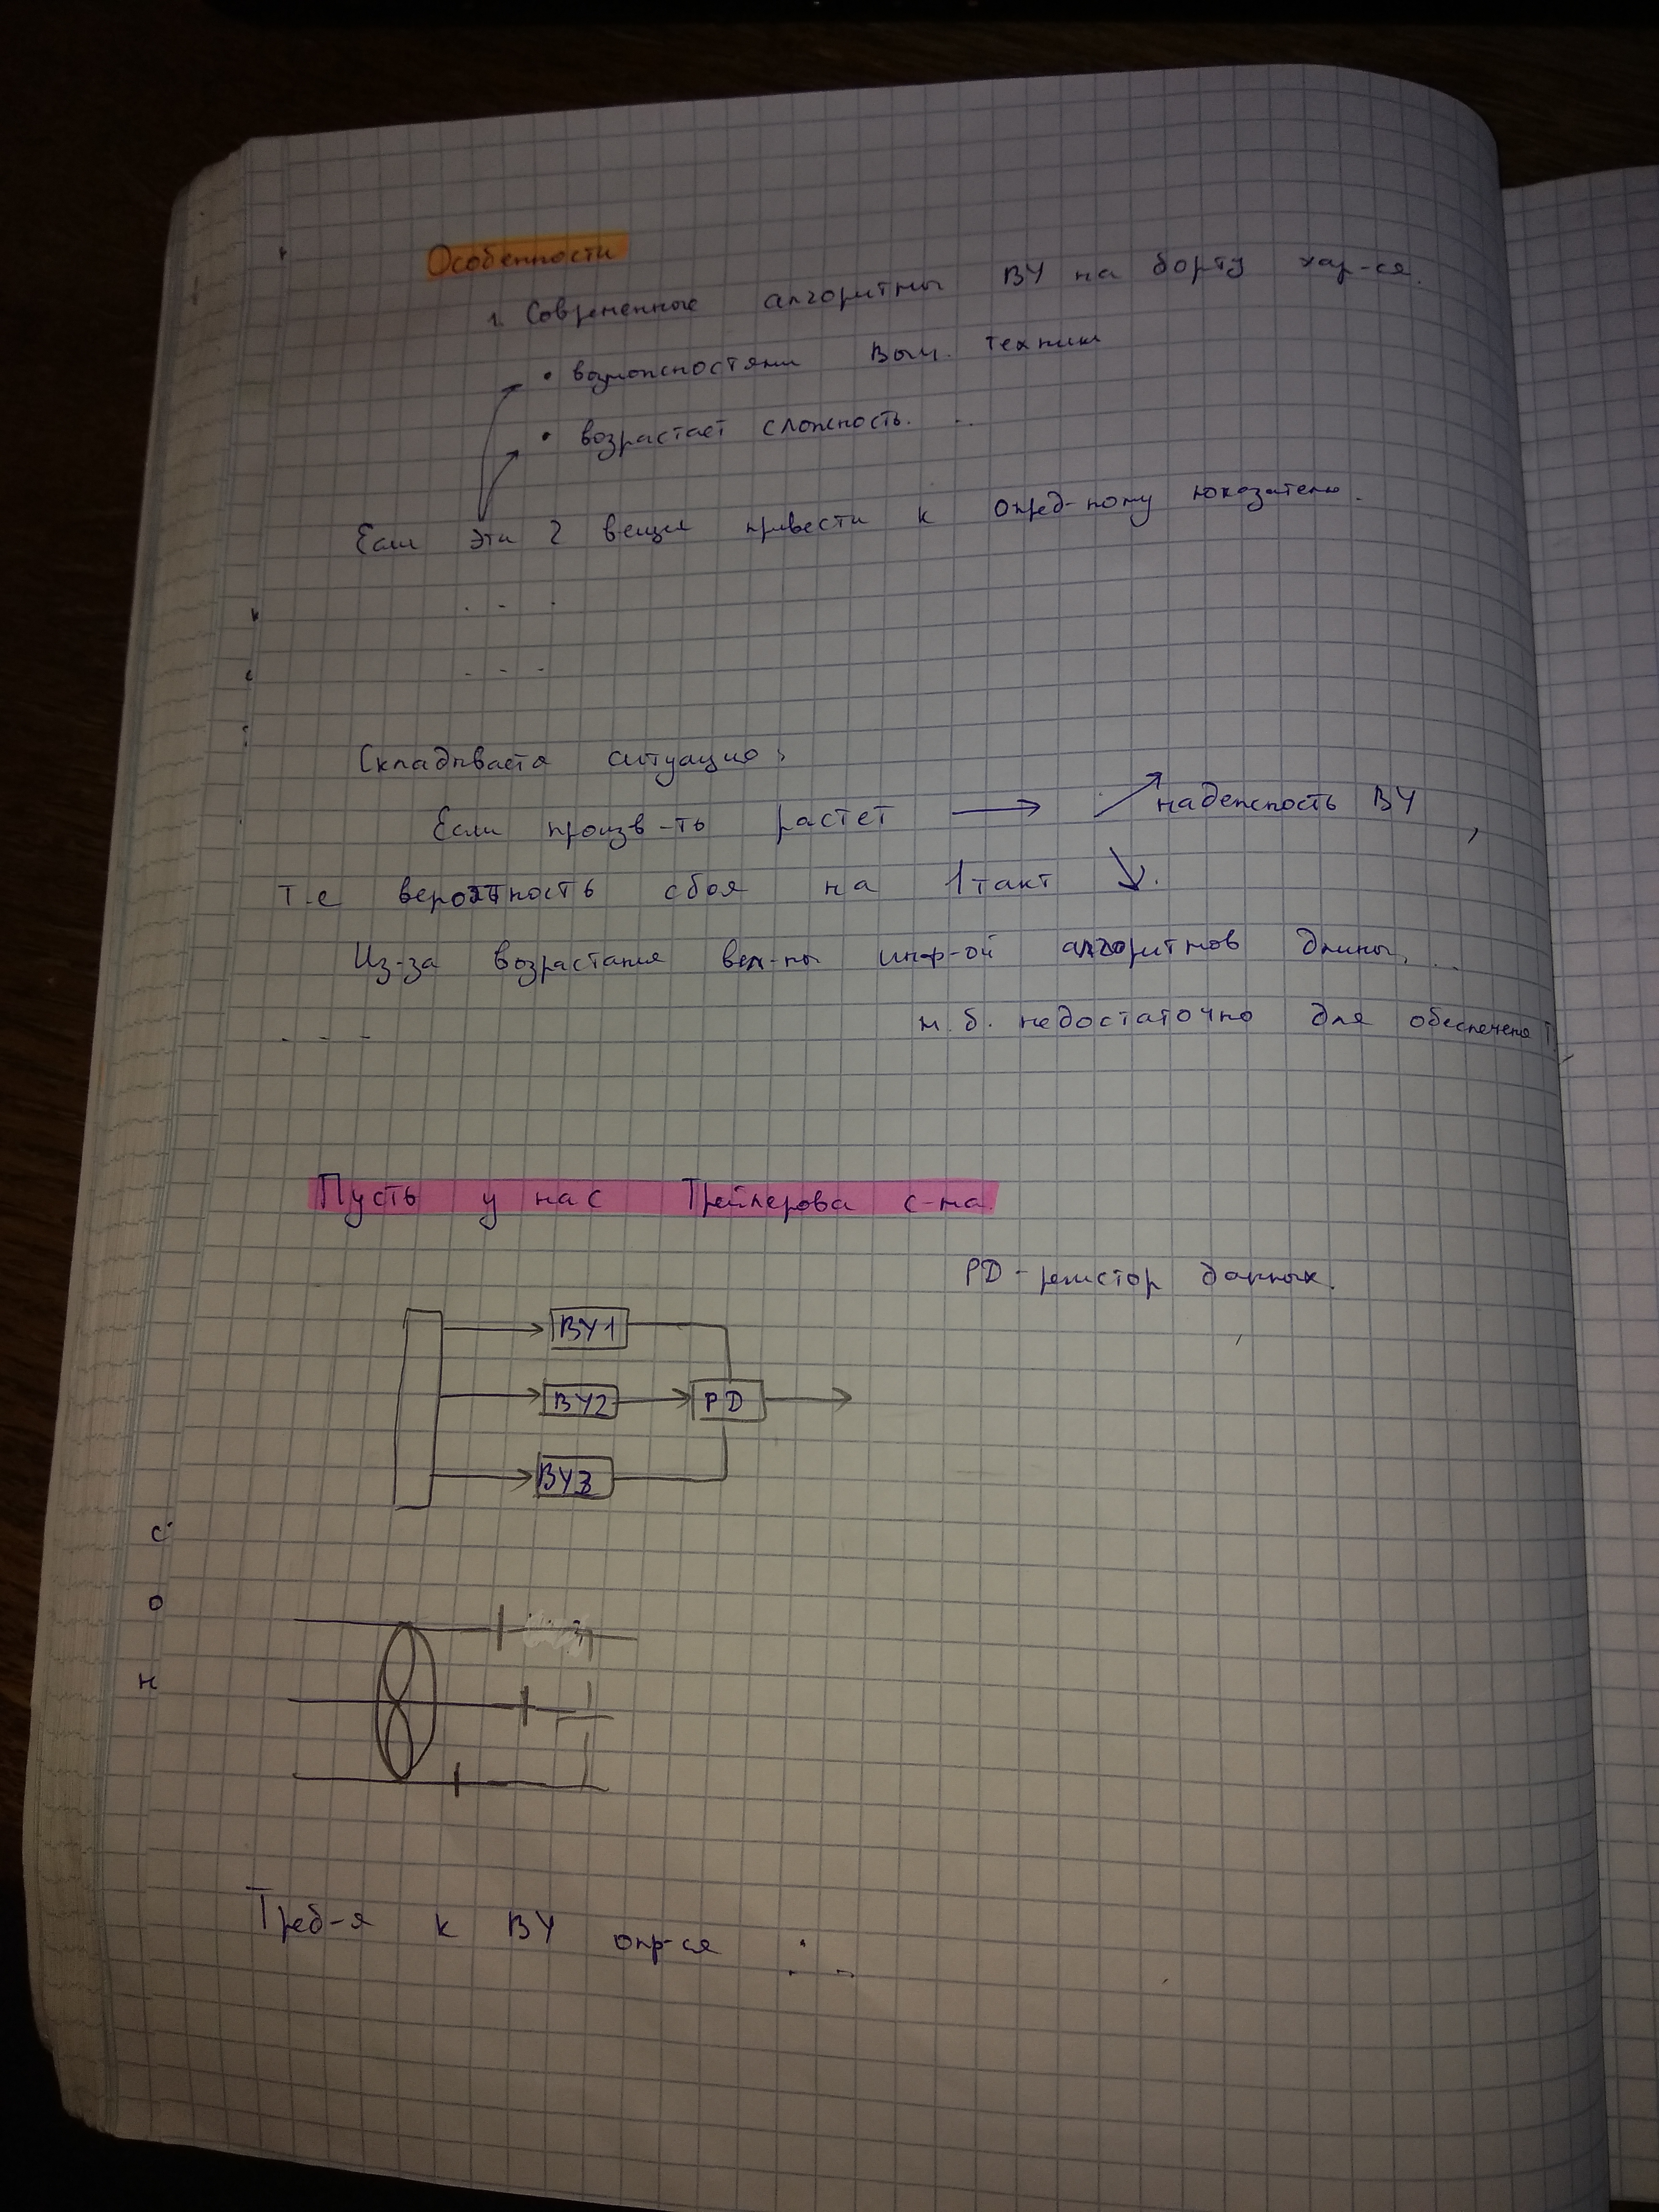 Особенности
1. Современные алгоритмы ВУ на борту хар-ся.
• возможностями Выч. техники
• возрастает сложность. ..
Если эти 2 вещи привести к опред-ному показателю.
. - .
. - -
Складывается ситуация:
Если произв-ть растет → ↗ надежность ВУ,
т.е вероятность сбоя на 1 такт ↘.
Из-за возрастания вел-ны инф-ой алгоритмов длины, ..
. - - - м.б. недостаточно для обеспечения
Пусть у нас Трейлерова с-ма.
РD - регистор данных.
ВУ1
ВУ2 РD
ВУ3
с
о
н
Треб-я к ВУ опр-ся :